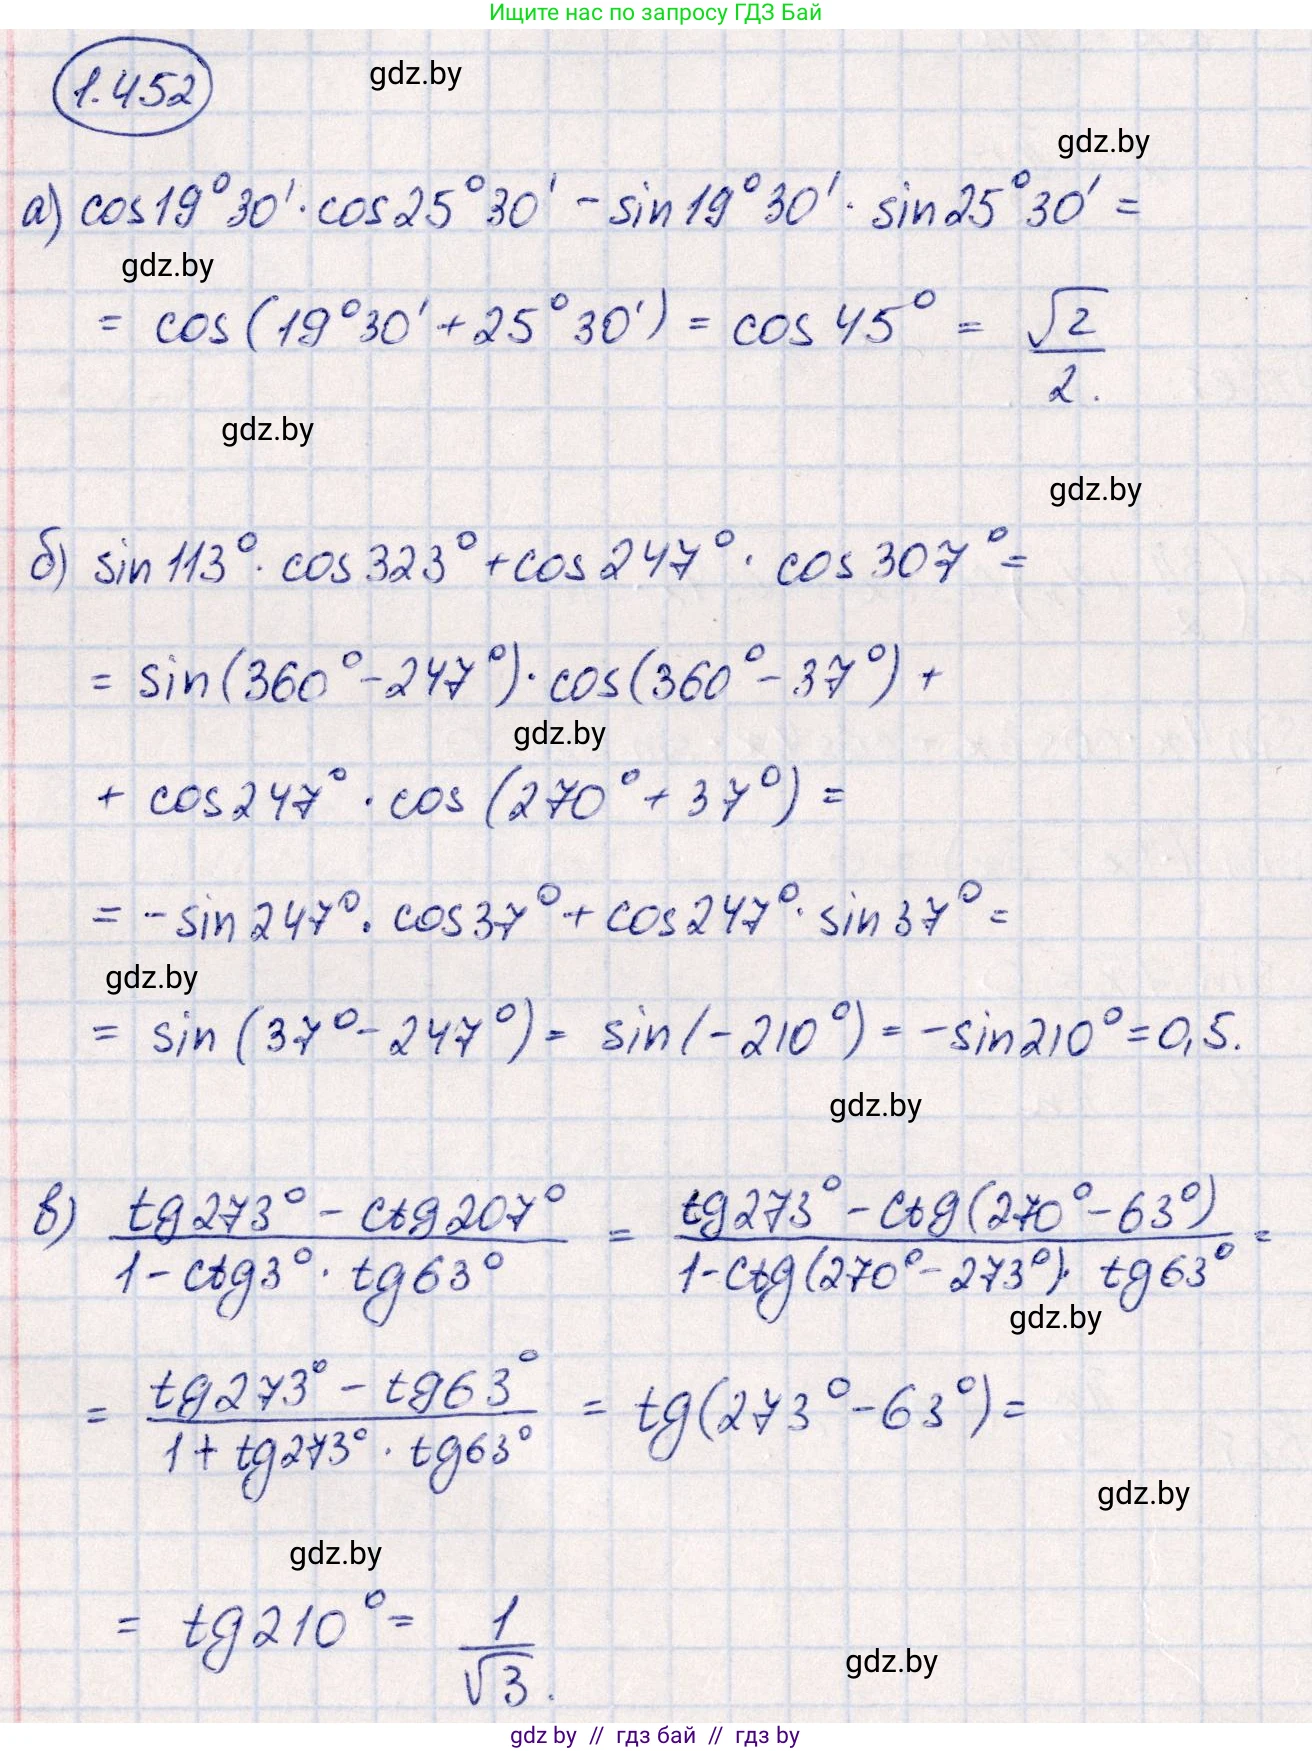 Ищите нас по запросу ГДЗ Бай
1.452
gdz.by
gdz.by
а) cos19°30'·cos25°30' - sin19°30'·sin25°30' =
gdz.by
= cos(19°30'+25°30') = cos45° = √2/2.
gdz.by
gdz.by
б) sin113°·cos323°+cos247°·cos307°=
= sin(360°-247°)·cos(360°-37°)+
gdz.by
+ cos247°·cos(270°+37°)=
= -sin247°·cos37°+cos247°·sin37°=
gdz.by
= sin(37°-247°)= sin(-210°)= -sin210°=0,5.
gdz.by
в) (tg273° - ctg207°)/(1-ctg3°·tg63°) = (tg273°-ctg(270°-63°))/(1-ctg(270°-273°)·tg63°) =
gdz.by
= (tg273°-tg63°)/(1+tg273°·tg63°) = tg(273°-63°)=
gdz.by
gdz.by
= tg210°= 1/√3.
gdz.by
gdz by // гдз бай // гдз by